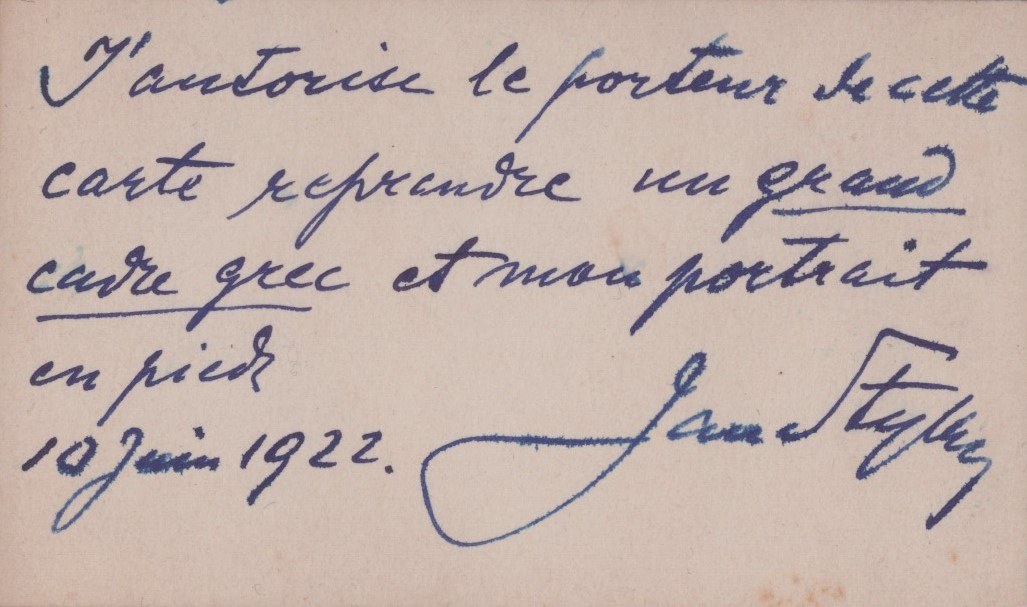 J'autorise le porteur de cette
carte reprendre un grand
cadre grec et mon portrait
en pieds
10 Juin 1922. Jan Styka